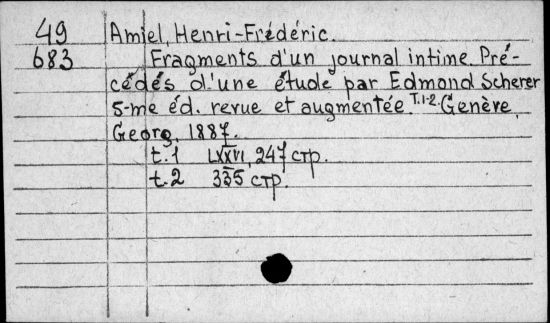 49 Amiel, Henri-Frédéric.
683 Fragments d'un journal intime. Pré-
cédés d'une étude par Edmond Scherer
5-me éd. revue et augmentée. T.1-2. Genève,
Georg, 1887.
t.1 LXXVI, 247 стр.
t.2 335 стр.